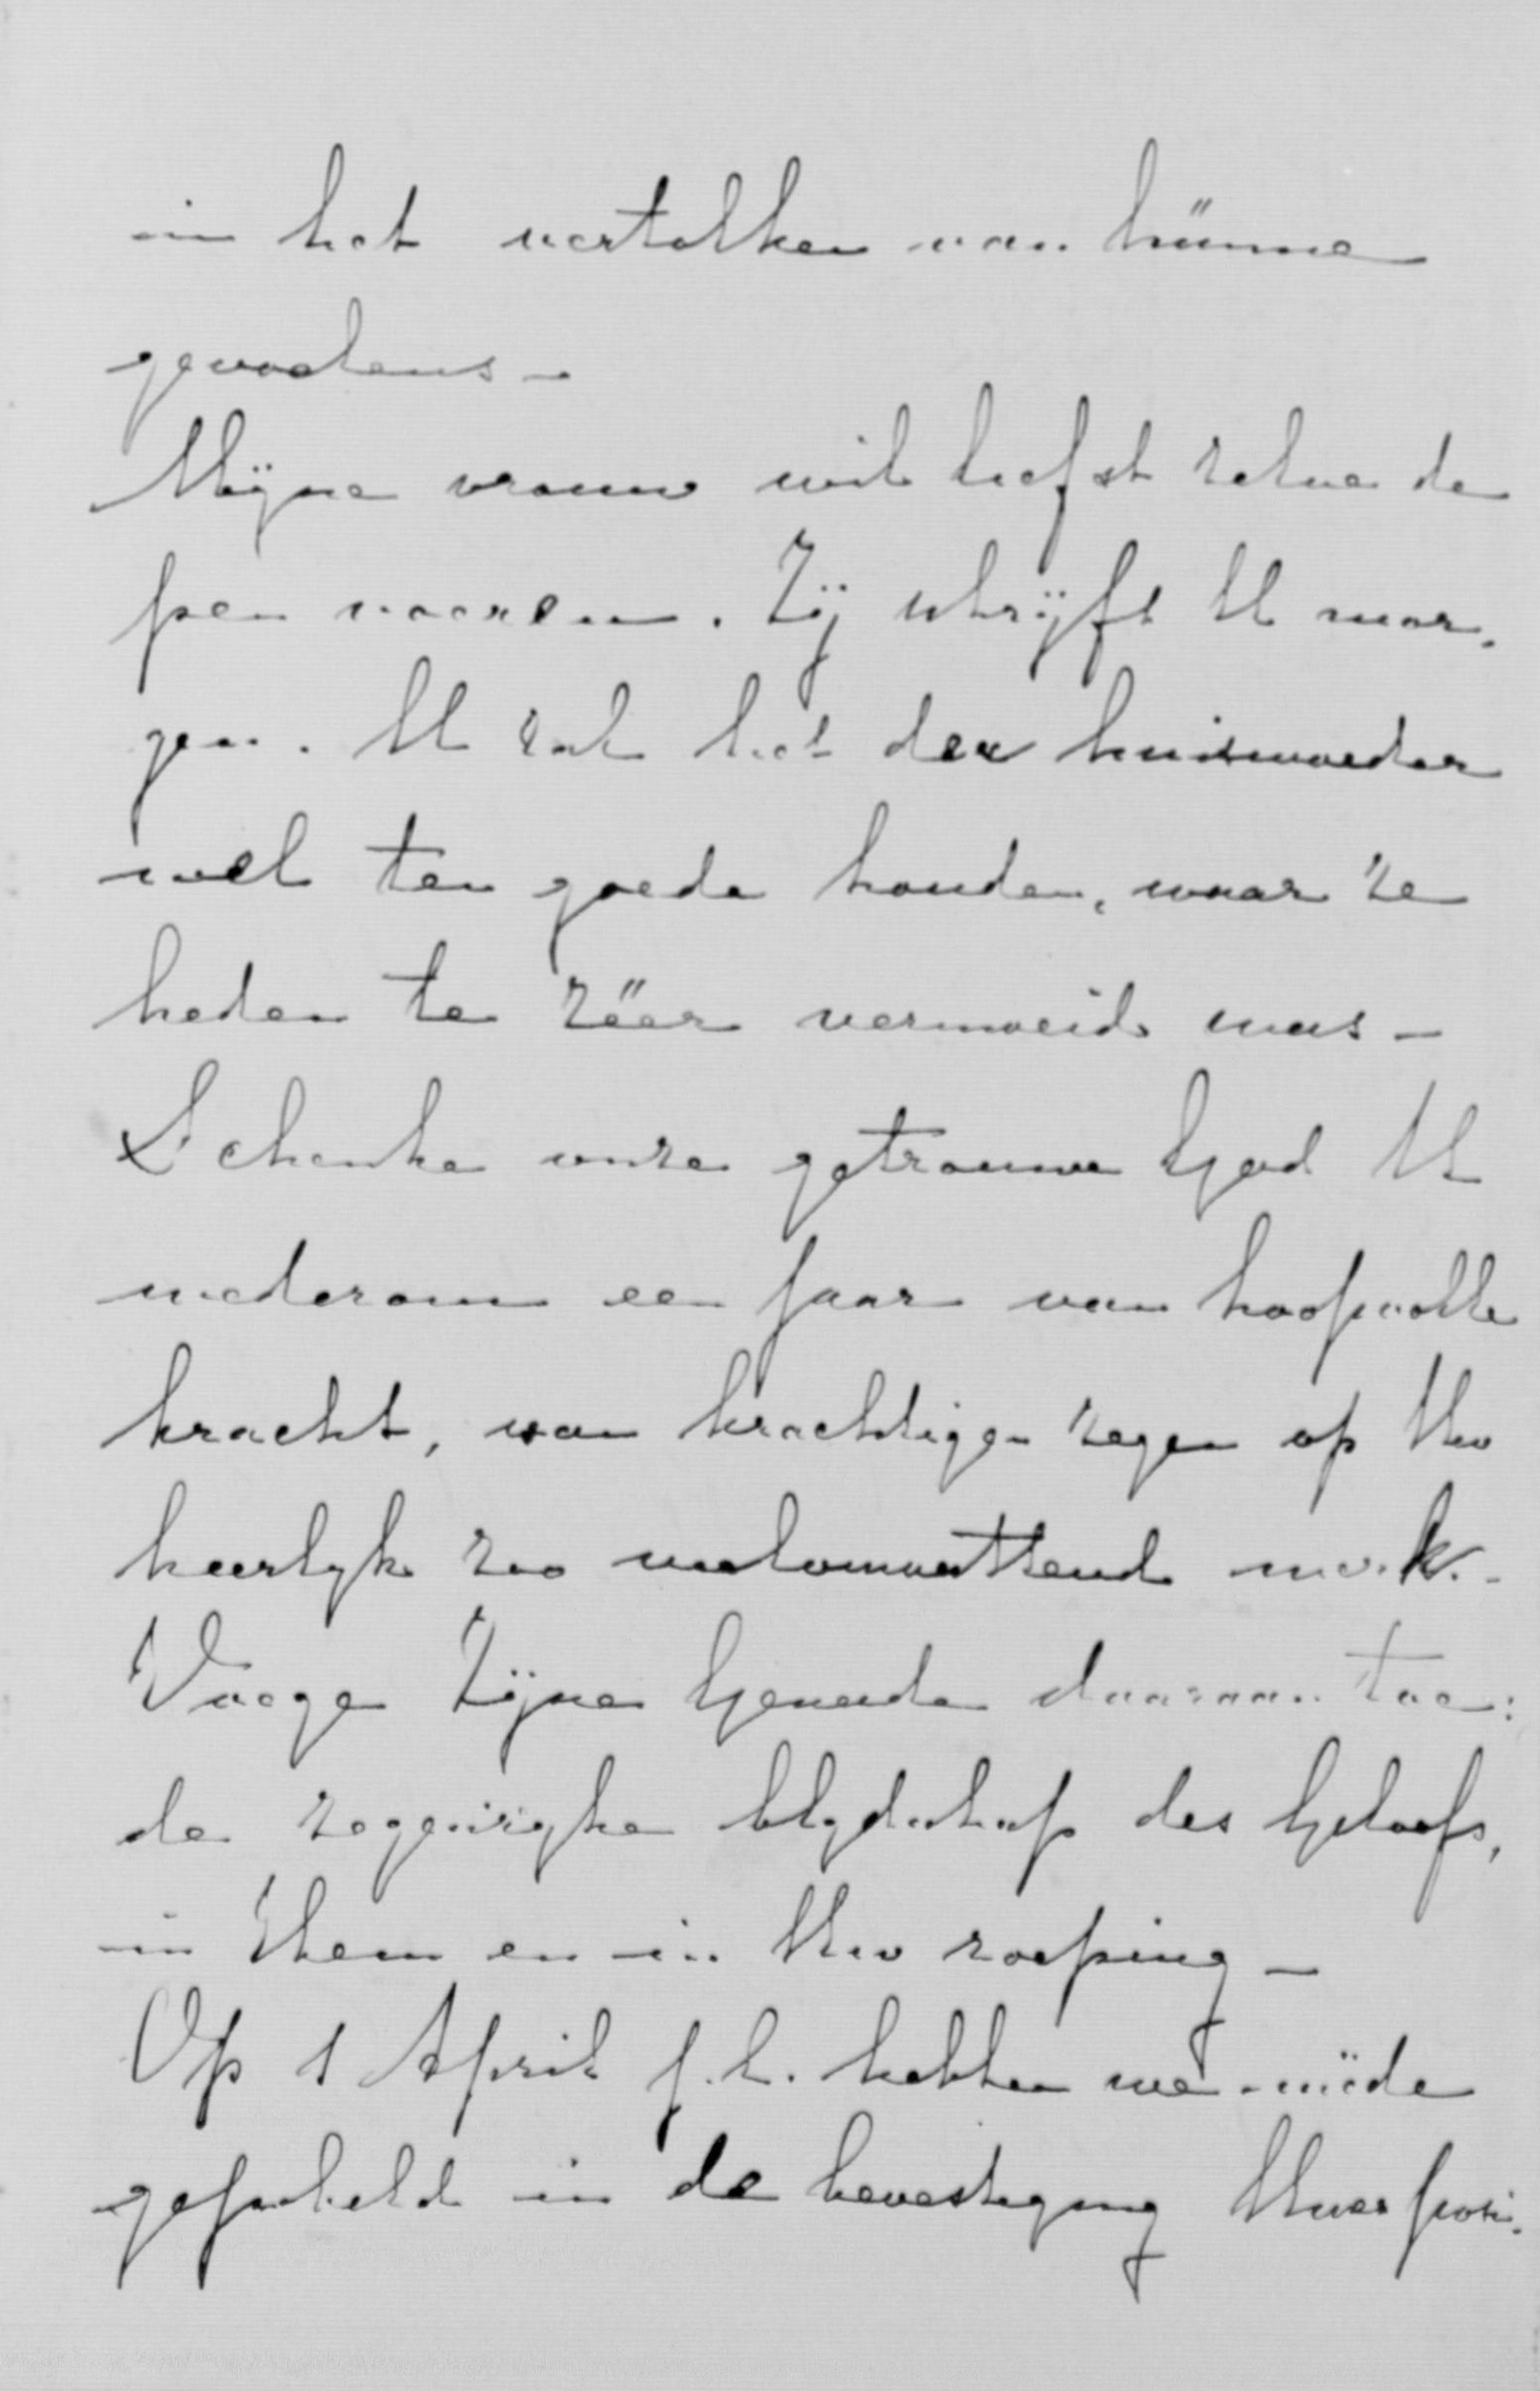 in het vertolken van hunne
gevoelens –
Mijne vrouw wil liefst zelve de
pen voeren. Zij schrijft U mor-
gen. U zal het der huismoeder
wel ten goede houden, waar ze
heden te zéér vermoeid was –
Schenke onze getrouwe God U
wederom een jaar van hoopvolle
kracht, van krachtigen zegen op Uw
heerlyk zoo veelomvattend werk. –
Voege Zijne Genade daaraan toe:
de zegenryke blydschap des Geloofs,
in Hem en in Uw roeping –
Op 1 April j.l. hebben we mede
gejubeld in de bevestiging Uwer posi-